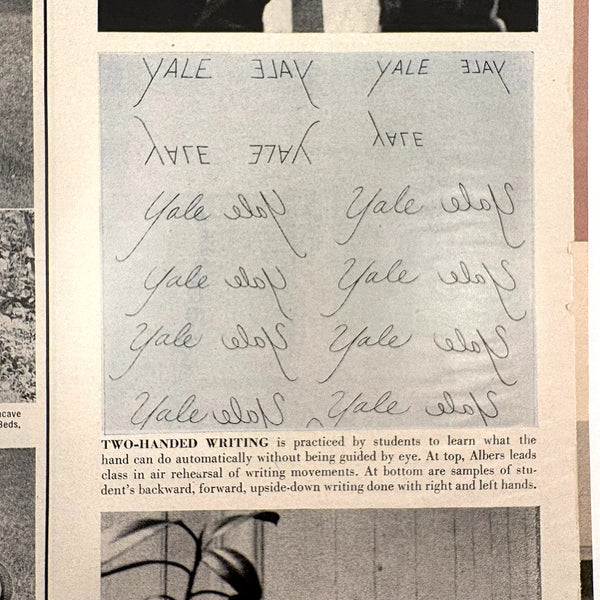 YALE YALE YALE YALE
YALE YALE YALE
Yale Yale Yale Yale
Yale Yale Yale Yale
Yale Yale Yale Yale
Yale Yale Yale Yale
Beds,
TWO-HANDED WRITING is practiced by students to learn what the
hand can do automatically without being guided by eye. At top, Albers leads
class in air rehearsal of writing movements. At bottom are samples of stu-
dent's backward, forward, upside-down writing done with right and left hands.